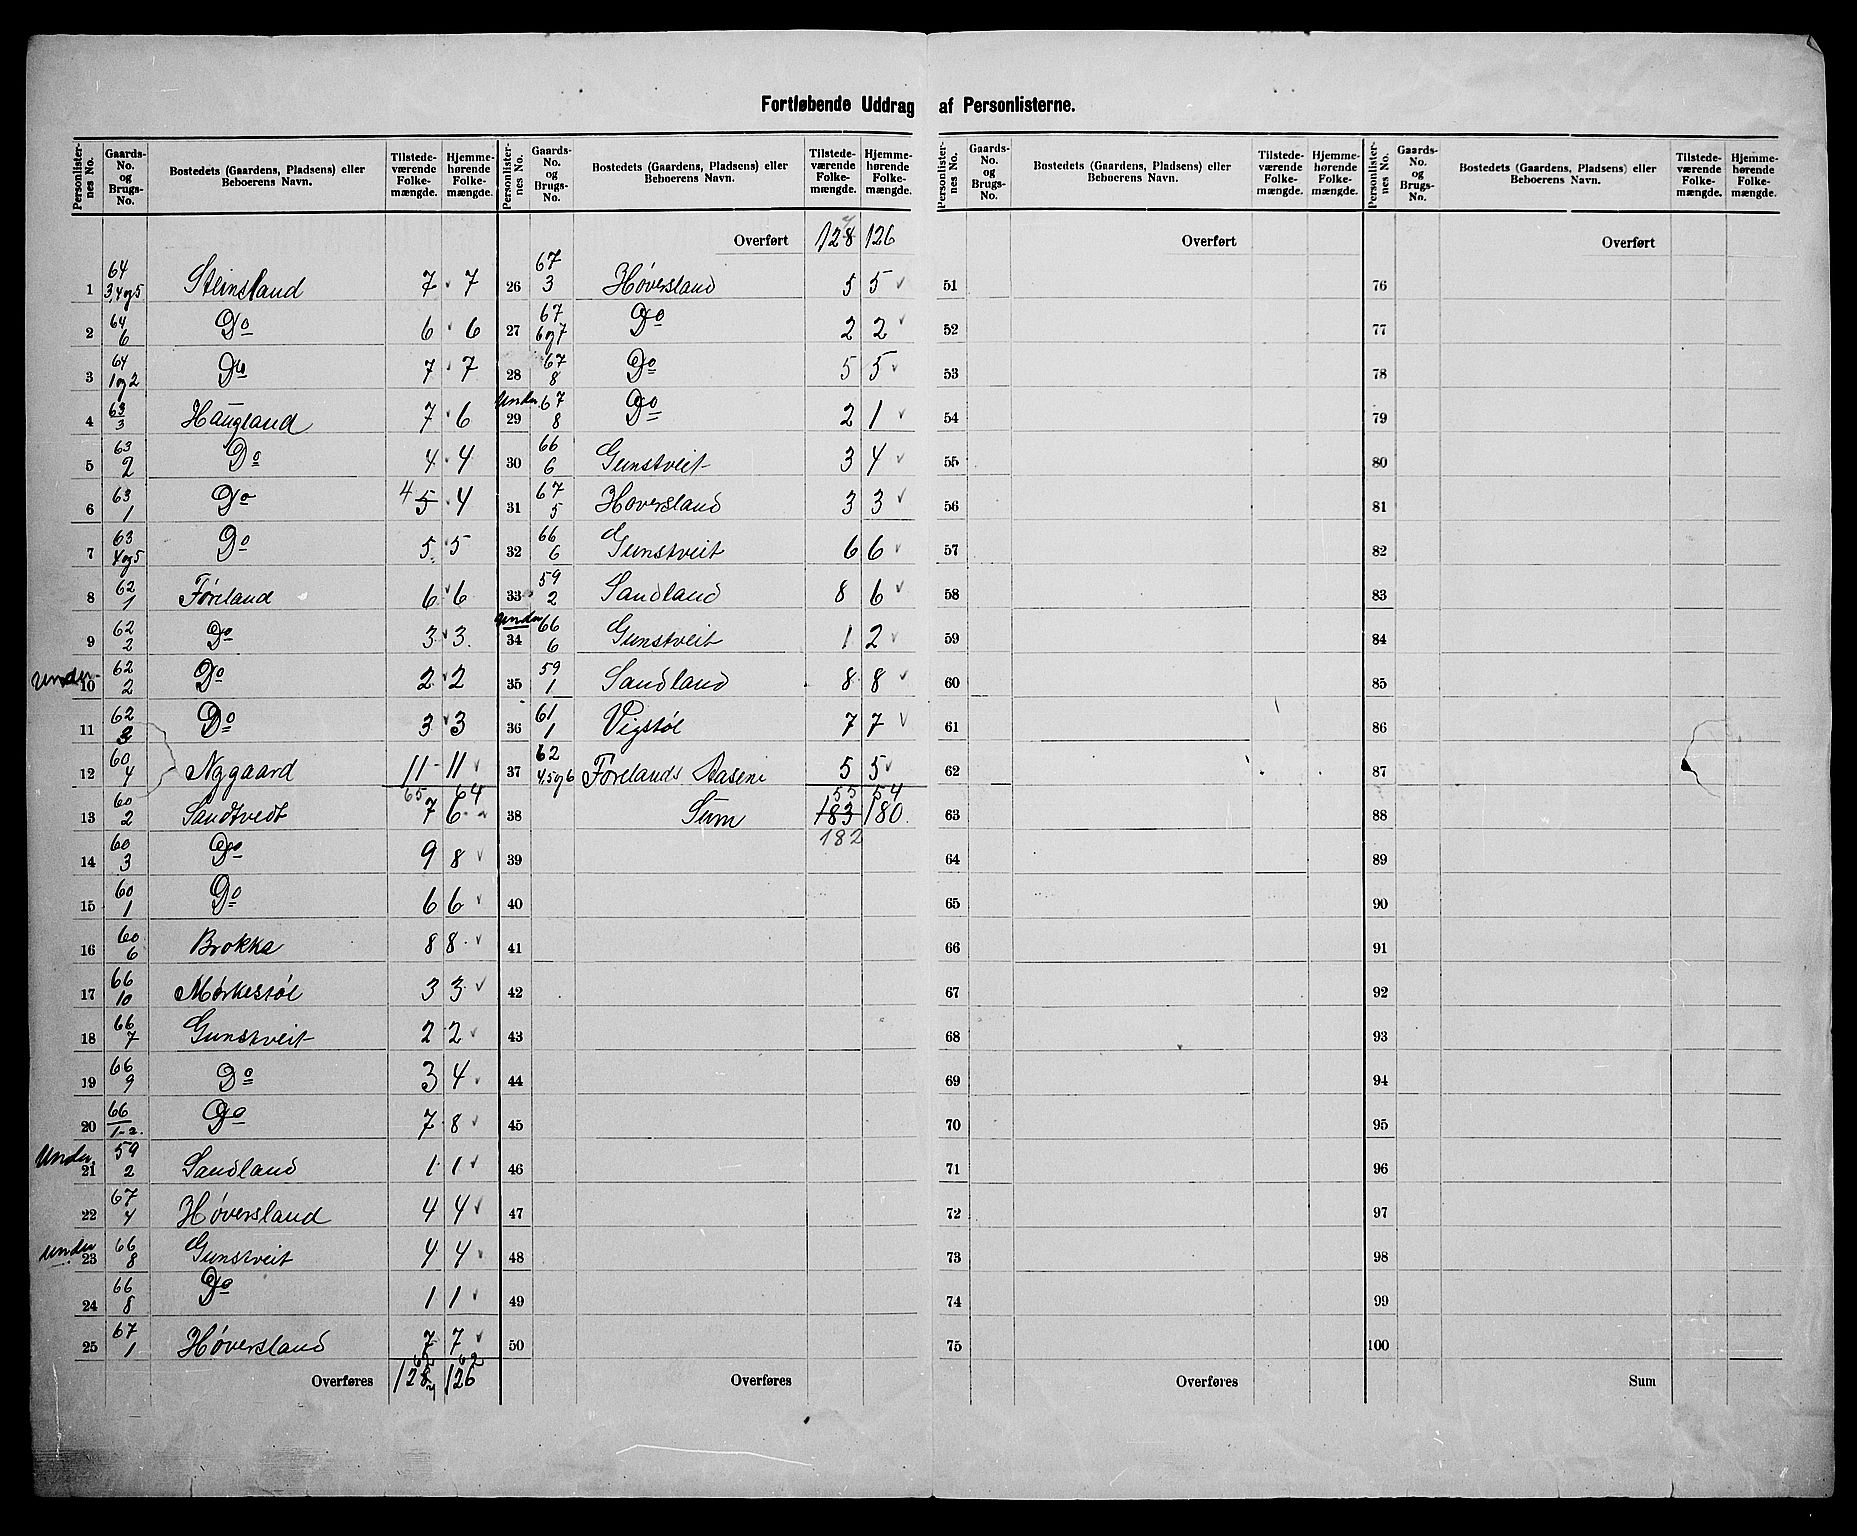 Fortløbende Uddrag af Personlisterne.
Personlister-nes No. | Gaards-No. og Brugs-No. | Bostedets (Gaardens, Pladsens) eller Beboerens Navn. | Tilstede-værende Folke-mængde. | Hjemme-hørende Folke-mængde.
1 | 64 3,4og5 | Steinsland | 7 | 7
2 | 64 6 | Do | 6 | 6
3 | 64 1og2 | Do | 7 | 7
4 | 63 3 | Haugland | 7 | 6
5 | 63 2 | Do | 4 | 4
6 | 63 1 | Do | 4 5 | 4
7 | 63 4og5 | Do | 5 | 5
8 | 62 1 | Føreland | 6 | 6
9 | 62 2 | Do | 3 | 3
under 10 | 62 2 | Do | 2 | 2
11 | 62 3 | Do | 3 | 3
12 | 60 4 | Nygaard | 11 | 11
65 | 64
13 | 60 2 | Sandtvedt | 7 | 6
14 | 60 3 | Do | 9 | 8
15 | 60 1 | Do | 6 | 6
16 | 60 6 | Brokka | 8 | 8
17 | 66 10 | Mørkestøl | 3 | 3
18 | 66 7 | Gunstveit | 2 | 2
19 | 66 9 | Do | 3 | 4
20 | 66 1-2 | Do | 7 | 8
Under 21 | 59 2 | Sandland | 1 | 1
22 | 67 4 | Høversland | 4 | 4
under 23 | 66 8 | Gunstveit | 4 | 4
24 | 66 8 | Do | 1 | 1
25 | 67 1 | Høversland | 7 | 7
62 | 62
Overføres | 128 7 | 126
Personlister-nes No. | Gaards-No. og Brugs-No. | Bostedets (Gaardens, Pladsens) eller Beboerens Navn. | Tilstede-værende Folke-mængde. | Hjemme-hørende Folke-mængde.
Overført | 128 7 | 126
26 | 67 3 | Høversland | 5 | 5
27 | 67 6og7 | Do | 2 | 2
28 | 67 8 | Do | 5 | 5
Under 29 | 67 8 | Do | 2 | 1
30 | 66 6 | Gunstveit | 3 | 4
31 | 67 5 | Hoversland | 3 | 3
32 | 66 6 | Gunstveit | 6 | 6
33 | 59 2 | Sandland | 8 | 6
under 34 | 66 6 | Gunstveit | 1 | 2
35 | 59 1 | Sandland | 8 | 8
36 | 61 1 | Vigstøl | 7 | 7
37 | 62 4,5og6 | Førelands Aasene | 5 | 5
55 | 54
38 | Sum | 183 | 180
182
39
40
41
42
43
44
45
46
47
48
49
50
Overføres
Personlister-nes No. | Gaards-No. og Brugs-No. | Bostedets (Gaardens, Pladsens) eller Beboerens Navn. | Tilstede-værende Folke-mængde. | Hjemme-hørende Folke-mængde.
Overført
51
52
53
54
55
56
57
58
59
60
61
62
63
64
65
66
67
68
69
70
71
72
73
74
75
Overføres
Personlister-nes No. | Gaards-No. og Brugs-No. | Bostedets (Gaardens, Pladsens) eller Beboerens Navn. | Tilstede-værende Folke-mængde. | Hjemme-hørende Folke-mængde.
Overført
76
77
78
79
80
81
82
83
84
85
86
87
88
89
90
91
92
93
94
95
96
97
98
99
100
Sum